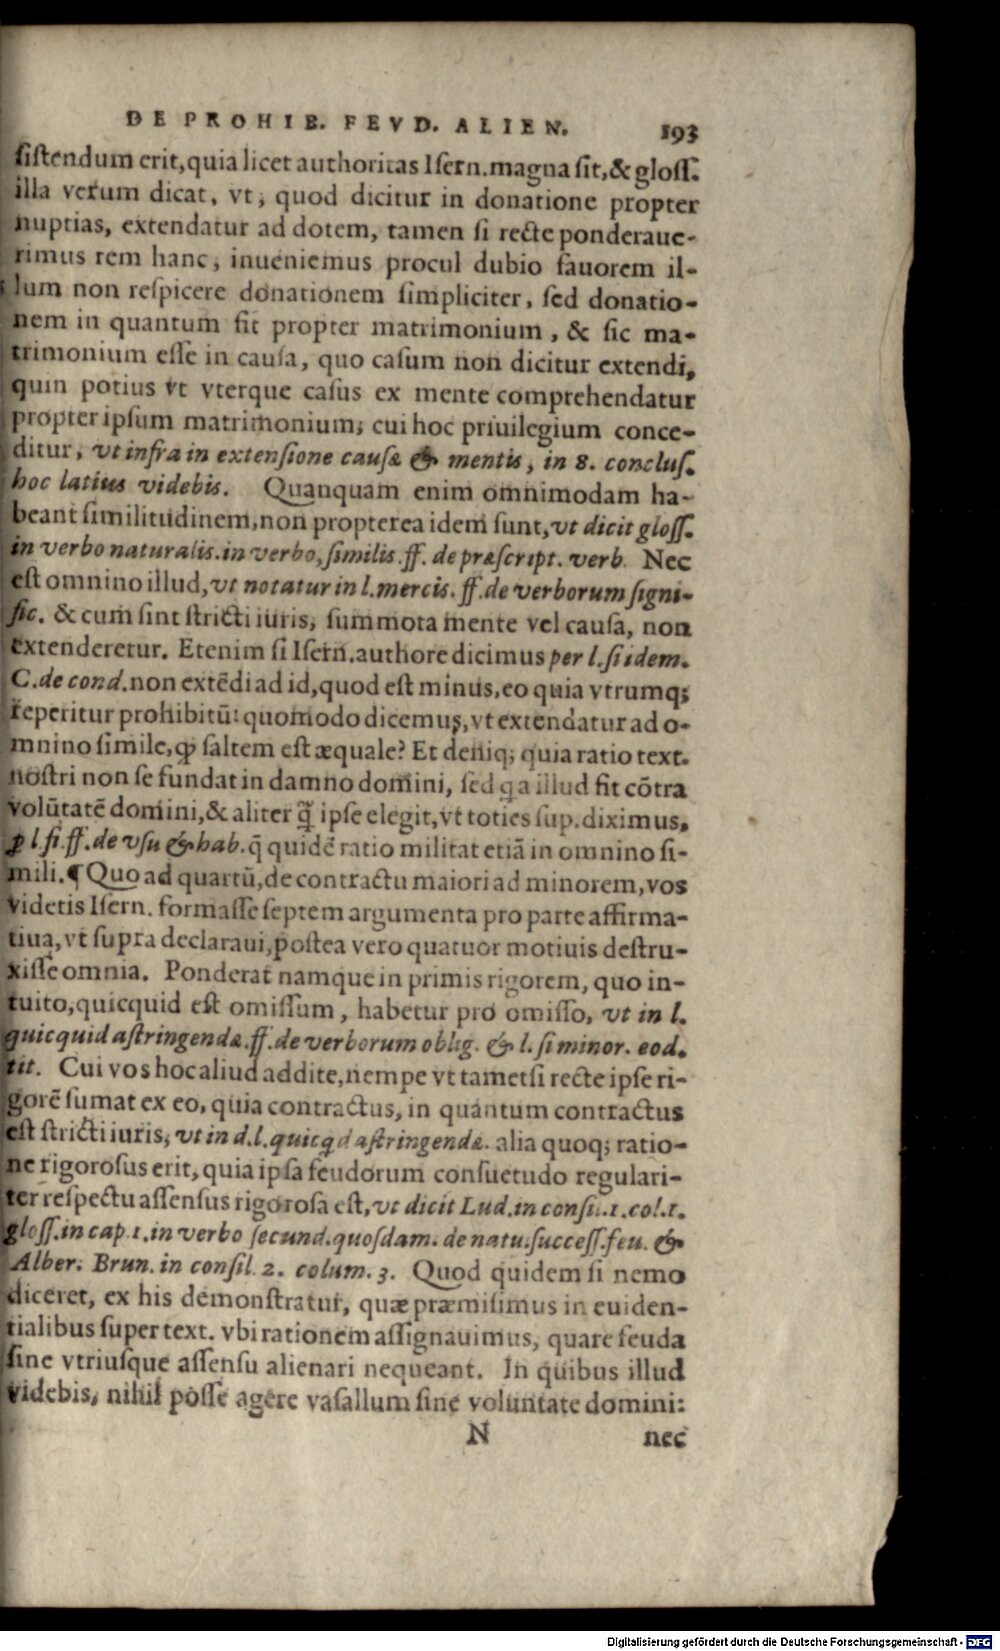 DE PROHIB. FEVD. ALIEN. 193
sistendum erit, quia licet authoritas Isern. magna sit, & gloss.
illa verum dicat, vt, quod dicitur in donatione propter
nuptias, extendatur ad dotem, tamen si recte ponderaue-
rimus rem hanc, inueniemus procul dubio fauorem il-
lum non respicere donationem simpliciter, sed donatio-
nem in quantum fit propter matrimonium, & sic ma-
trimonium esse in causa, quo casum non dicitur extendi,
quin potius vt vterque casus ex mente comprehendatur
propter ipsum matrimonium; cui hoc priuilegium conce-
ditur, vt infra in extensione causæ & mentis, in 8. conclus.
hoc latius videbis. Quanquam enim omnimodam ha-
beant similitudinem, non propterea idem sunt, vt dicit gloss.
in verbo naturalis. in verbo, similis. ff. de præscript. verb. Nec
est omnino illud, vt notatur in l. mercis. ff. de verborum signi-
fic. & cum sint stricti iuris, summota mente vel causa, non
extenderetur. Etenim si Isern. authore dicimus per l. si idem.
C. de cond. non extēdi ad id, quod est minus, eo quia vtrumq;
reperitur prohibitū: quomodo dicemus, vt extendatur ad o-
mnino simile, ꝙ saltem est æquale? Et deniq; quia ratio text.
nostri non se fundat in damno domini, sed q a illud fit cōtra
volūtatē domini, & aliter q̃ ipse elegit, vt toties sup. diximus,
ꝑ l. fi. ff. de vsu & hab. q̄ quidē ratio militat etiā in omnino si-
mili. ¶ Quo ad quartū, de contractu maiori ad minorem, vos
videtis Isern. formasse septem argumenta pro parte affirma-
tiua, vt supra declaraui, postea vero quatuor motiuis destru-
xisse omnia. Ponderat namque in primis rigorem, quo in-
tuito, quicquid est omissum, habetur pro omisso, vt in l.
quicquid astringendæ. ff. de verborum oblig. & l. si minor. eod.
tit. Cui vos hoc aliud addite, nempe vt tametsi recte ipse ri-
gorē sumat ex eo, quia contractus, in quantum contractus
est stricti iuris, vt in d. l. quicq d astringendæ. alia quoq; ratio-
ne rigorosus erit, quia ipsa feudorum consuetudo regulari-
ter respectu assensus rigorosa est, vt dicit Lud. in consil. 1. col. 1.
gloss. in cap. 1. in verbo secund. quosdam. de natu. success. feu. &
Alber. Brun. in consil. 2. colum. 3. Quod quidem si nemo
diceret, ex his demonstratur, quæ præmisimus in euiden-
tialibus super text. vbi rationem assignauimus, quare feuda
sine vtriusque assensu alienari nequeant. In quibus illud
videbis, nihil posse agere vasallum sine voluntate domini:
N nec
Digitalisierung gefördert durch die Deutsche Forschungsgemeinschaft - DFG